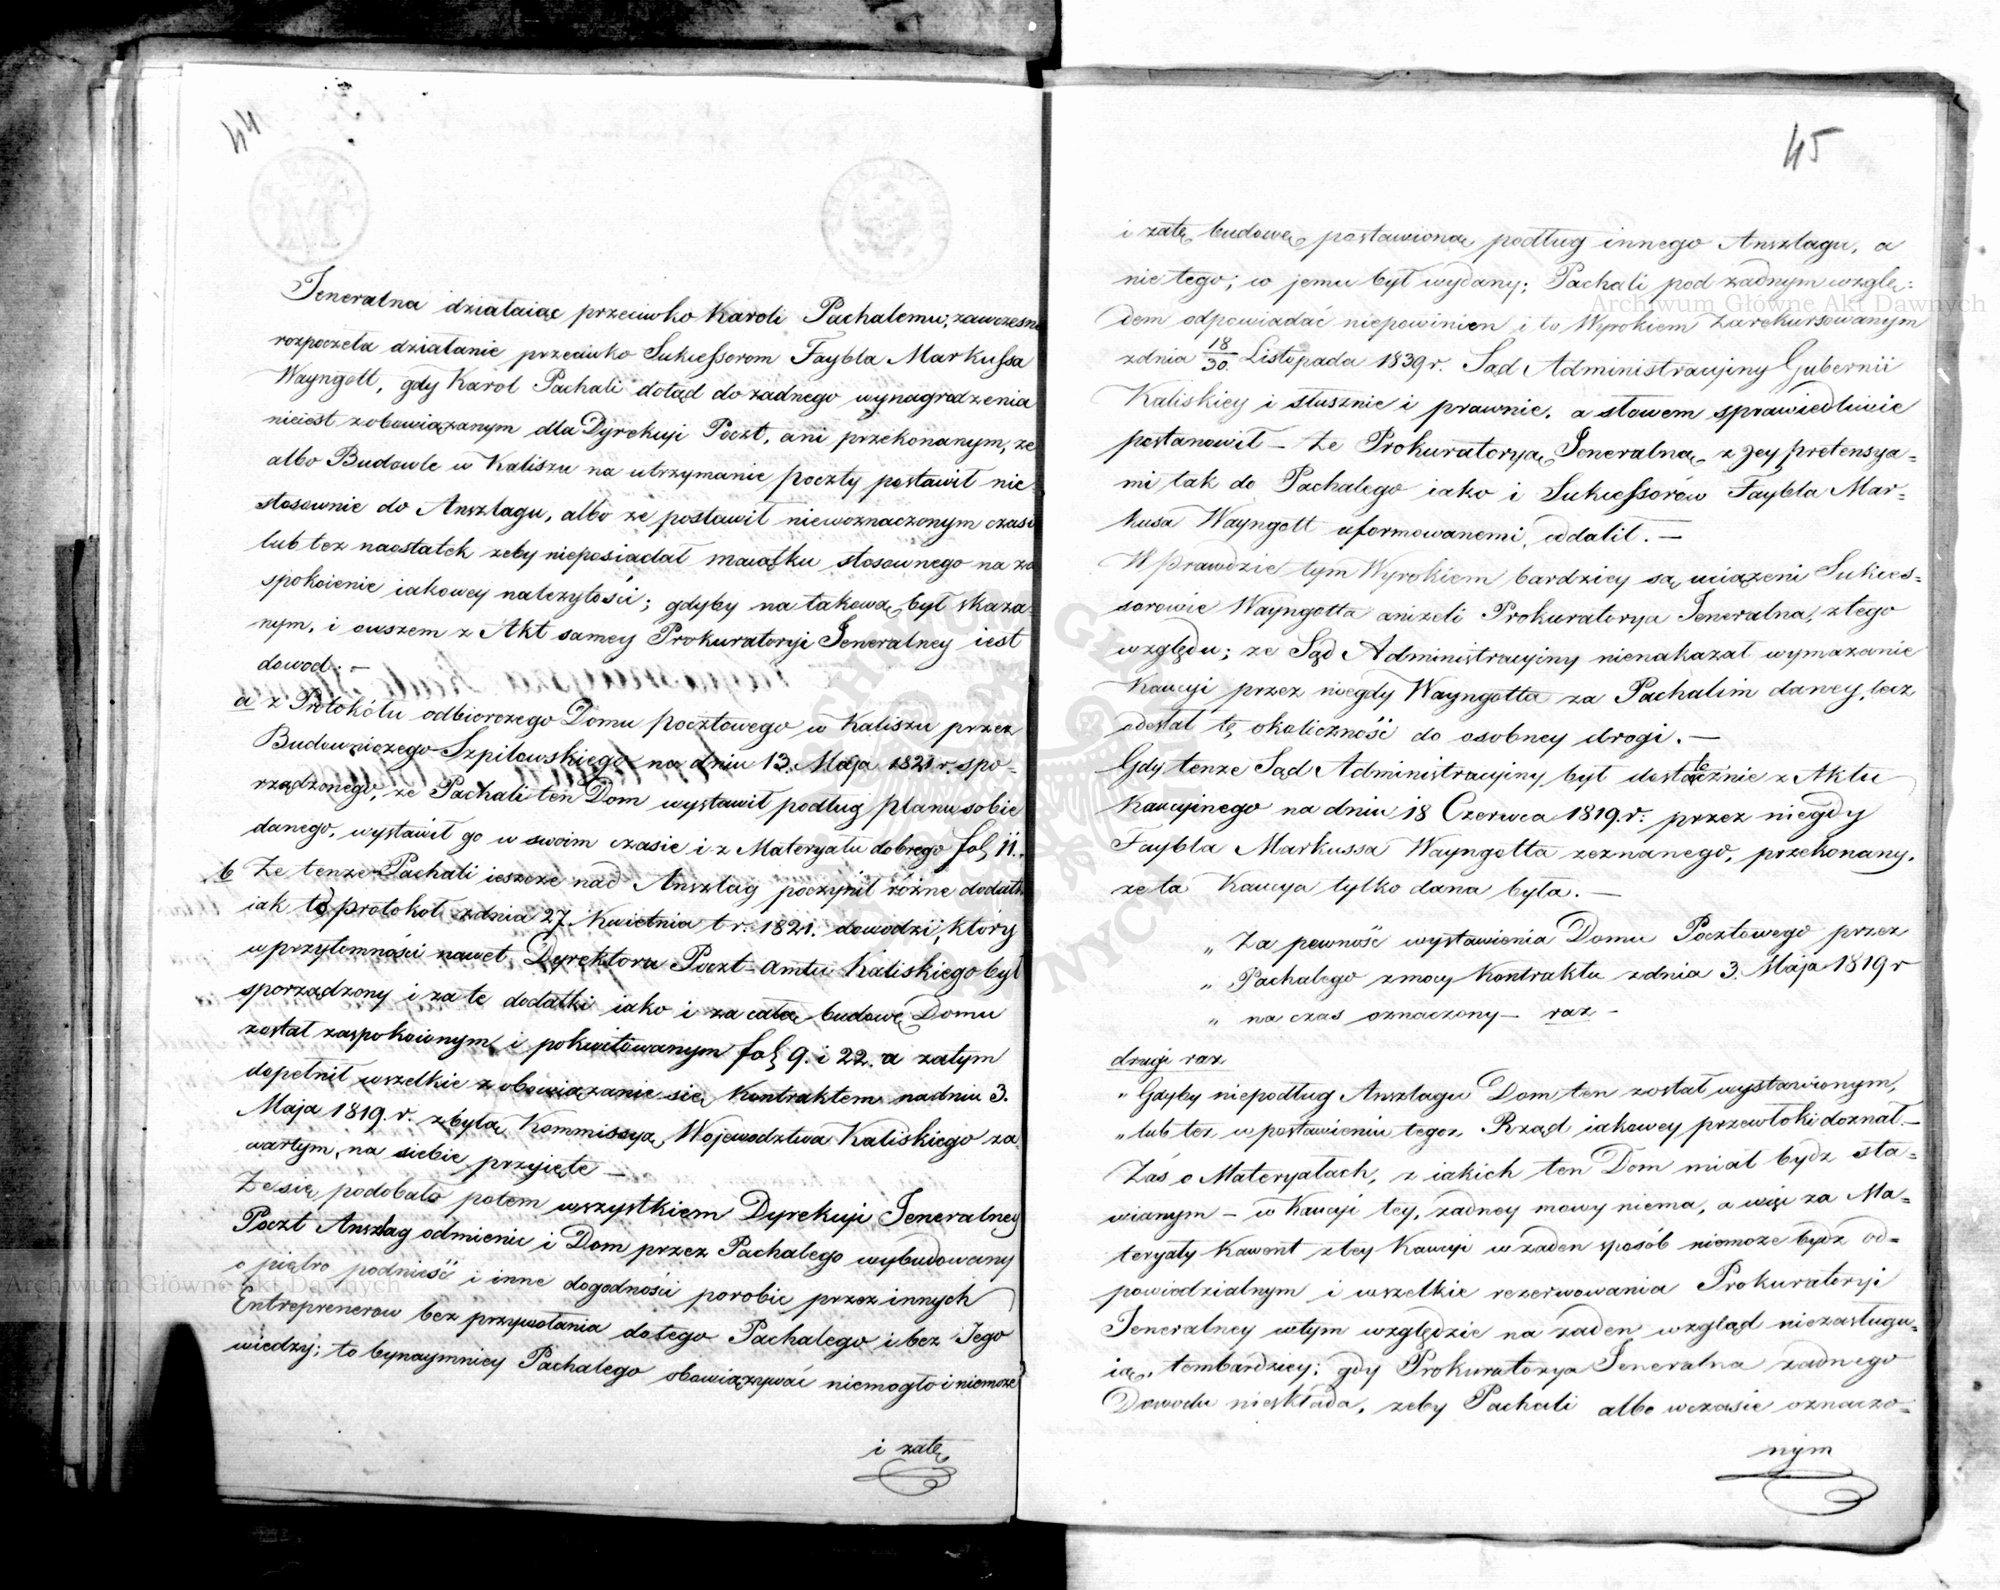 44
Jeneralna działaiąc przeciwko Karoli Pachalemu, zawczesno
rozpoczeła działanie przeciwko Sukcessorom Faybla Markussa
Wayngott, gdy Karol Pachali dotąd do zadnego wynagrodzenia
nieiest zobowiązanym dla Dyrekcyi Poczt, ani przekonanym, ze
albo Budowle w Kaliszu na utrzymanie poczty postawił nie
stosownie do Anszlagu, albo ze postawił niewoznaczonym czasie
lub tez naostatek zeby nieposiadał maiątku stosownego na za
spokoienie iakowey nalezytości; gdyby na takową był skaza
nym, i owszem z Akt samey Prokuratoryi Jeneralney iest
dowod. —
a z Protokółu odbiorczego Domu pocztowego w Kaliszu przez
Budowniczego Szpilowskiego na dniu 13. Maja 1821 r. spo-
rządzonego, ze Pachali ten Dom wystawił podług planu sobie
danego, wystawił go w swoim czasie i z Materyału dobrego fol 11.
b Ze tenze Pachali ieszcze nad Anszlag poczynił różne dodatki
iak to protokół zdnia 27. Kwietnia t r. 1821. dowodzi, który
w przytomności nawet Dyrektora Poczt-amtu Kaliskiego był
sporządzony i za te dodatki iako i za całą budowę Domu
został zaspokoionym i pokwitowanym fol 9. i 22. a zatym
dopełnił wszelkie zobowiązanie się Kontraktem na dniu 3.
Maja 1819. r. zbyłą Kommissyą Wojewodztwa Kaliskiego za
wartym, na siebie przyięte —
Ze się podobało potem wszystkiem Dyrekcyi Jeneralney
Poczt Anszlag odmienic i Dom przez Pachalego wybudowany
o piętro podnieść i inne dogodności porobic przez innych
Entreprenerow bez przywołania do tego Pachalego i bez Jego
wiedzy; to bynaymniey Pachalego obowiązywać niemogło i niemoze
i zatę
45
i zatę budowę postawioną podług innego Anszlagu, a
nie tego, co jemu był wydany; Pachali pod zadnym wzglę:
dem odpowiadać niepowinien i to Wyrokiem Zarekursowanym
zdnia 18/30 Listopada 1839 r. Sąd Administracyiny Gubernii
Kaliskiey i słusznie i prawnie, a słowem sprawiedliwie
postanowił — Ze Prokuratoryą Jeneralną z Jey pretensya=
mi tak do Pachalego iako i Sukcessorów Faybla Mar=
kusa Wayngott uformowanemi, oddalił. —
W prawdzie tym Wyrokiem bardziey są uciążeni Sukces=
sorowie Wayngotta anizeli Prokuratorya Jeneralna, ztego
względu; ze Sąd Administracyiny nienakazał wymazanie
Kaucyi przez niegdy Wayngotta za Pachalim daney, lecz
odesłał tę okoliczność do osobney drogi. —
Gdy tenze Sąd Administracyiny był dostatecznie z Aktu
Kaucyinego na dniu 18 Czerwca 1819. r. przez niegdy
Faybla Markussa Wayngotta zeznanego, przekonany,
ze ta Kaucya tylko dana była. —
„ Za pewność wystawienia Domu Pocztowego przez
„ Pachalego zmocy Kontraktu zdnia 3. Maja 1819 r
„ na czas oznaczony — raz —
drugi raz
„ Gdyby niepodług Anszlagu Dom ten został wystawionym,
„ lub tez w postawieniu tegoz Rząd iakowey przewłoki doznał —
Zaś o Materyałach, z iakich ten Dom miał bydz sta=
wianym — w Kaucyi tey, zadney mowy niema, a więc za Ma=
teryały Kawent ztey Kaucyi w zaden sposób niemoze bydz od=
powiedzialnym i wszelkie rezerwowania Prokuratoryi
Jeneralney wtym względzie na zaden wzgląd niezasługu=
ią, tembardziey; gdy Prokuratorya Jeneralna zadnego
Dowodu nieskłada, zeby Pachali albo wczasie oznaczo=
nym
Archiwum Główne Akt Dawnych
Archiwum Główne Akt Dawnych